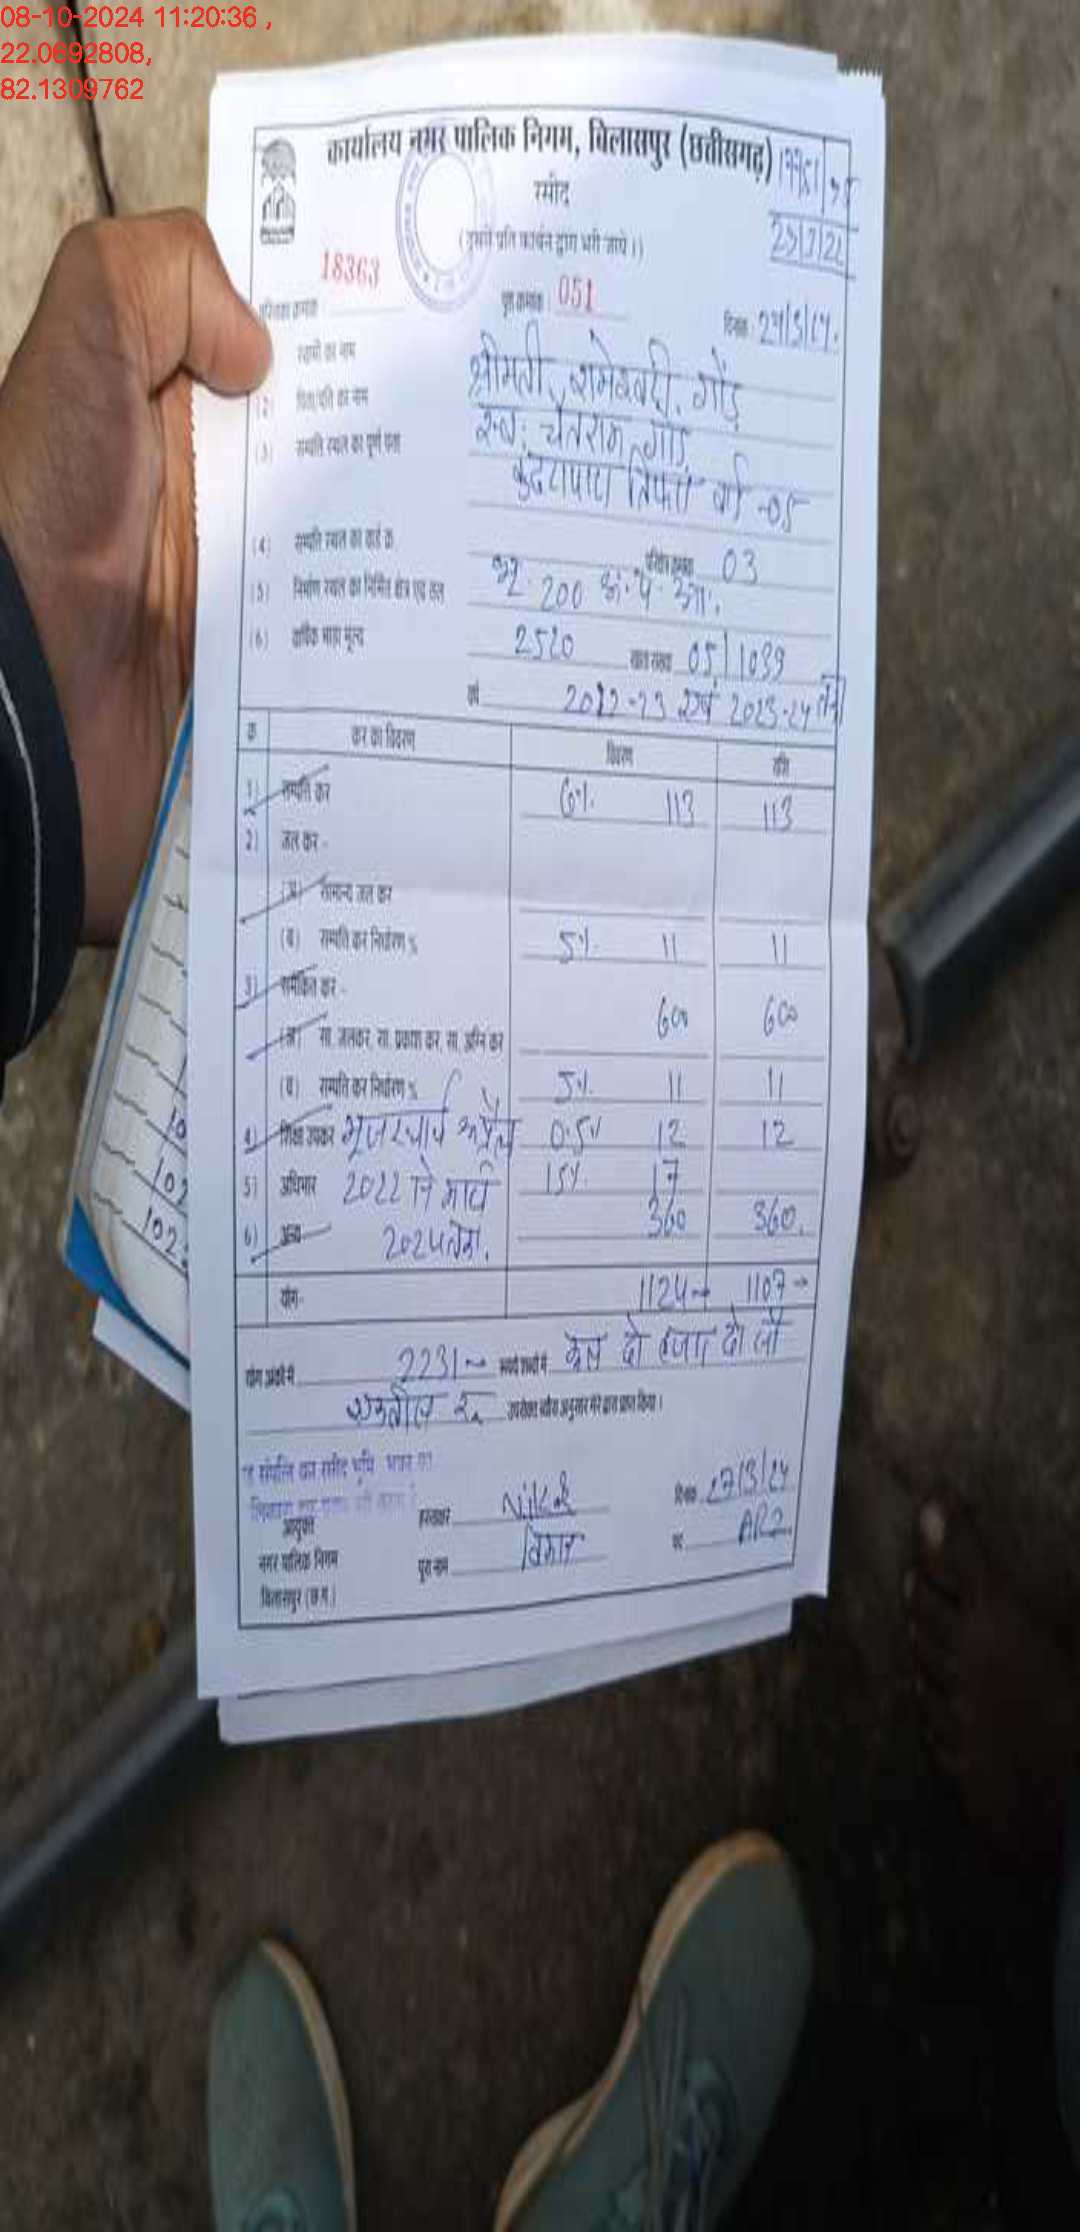 08-10-2024 11:20:36 ,
22.0692808,
82.1309762
कार्यालय नगर पालिक निगम, बिलासपुर (छत्तीसगढ़)
रसीद
(दूसरी प्रति कार्बन द्वारा भरी जाये।)
पुस्तिका क्रमांक 18363 पृष्ठ क्रमांक 051
दिनांक 27/3/24.
स्वामी का नाम श्रीमती रामेश्वरी गोंड़
(2) पिता/पति का नाम स्व. चैतराम गोंड़
(3) सम्पत्ति स्थल का पूर्ण पता तिफरा वार्ड -05
(4) सम्पत्ति स्थल का वार्ड क्र. 03
(5) निर्माण स्थल का निर्मित क्षेत्र एवं तल 200
(6) वार्षिक भाड़ा मूल्य 2520 खाता संख्या 05/1039
वर्ष 2022-23 एवं 2023-24
क्र कर का विवरण विवरण राशि
1) सम्पत्ति कर 6% 113 113
2) जल कर -
(अ) सामान्य जल कर
(ब) सम्पत्ति कर निर्धारण % 5% 11 11
3) समेकित कर -
600 600
(अ) सा. जलकर, सा. प्रकाश कर, सा. अग्नि कर
(ब) सम्पत्ति कर निर्धारण % 5% 11 11
4) शिक्षा उपकर यूजरचार्ज अप्रैल 0.5% 12 12
5) अधिभार 2022 से मार्च 15% 17
6) अन्य 2024 तक. 360 360.
योग- 1124 1107
योग अंकों में 2231 रूपये शब्दों में कुल दो हजार दो सौ
इकतीस रू उपरोक्त ब्यौरा अनुसार मेरे द्वारा प्राप्त किया।
संपत्ति कर रसीद भूमि, भवन का
आयुक्त हस्ताक्षर दिनांक 27/3/24
नगर पालिक निगम पूरा नाम पद ARI
बिलासपुर (छ.ग.)